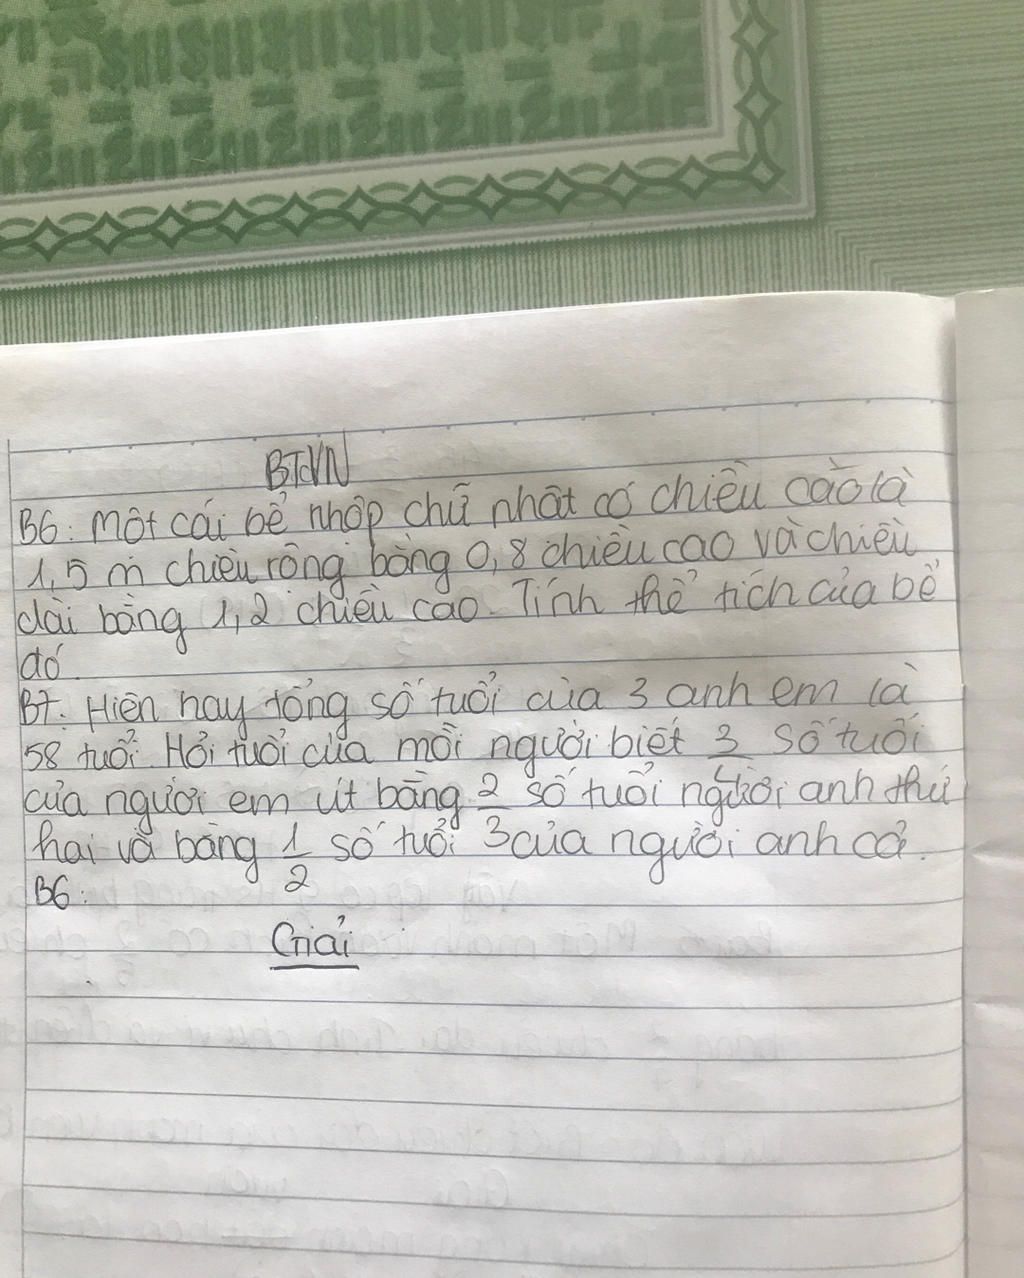 BTVN
B6: Một cái bể nhộp chữ nhật có chiều cao là
1,5 m chiều rộng bằng 0,8 chiều cao và chiều
dài bằng 1,2 chiều cao. Tính thể tích của bể
đó.
B7: Hiện nay tổng số tuổi của 3 anh em là
58 tuổi. Hỏi tuổi của mỗi người biết 3/4 số tuổi
của người em út bằng 2/3 số tuổi người anh thứ
hai và bằng 1/2 số tuổi của người anh cả.
B6:
Giải